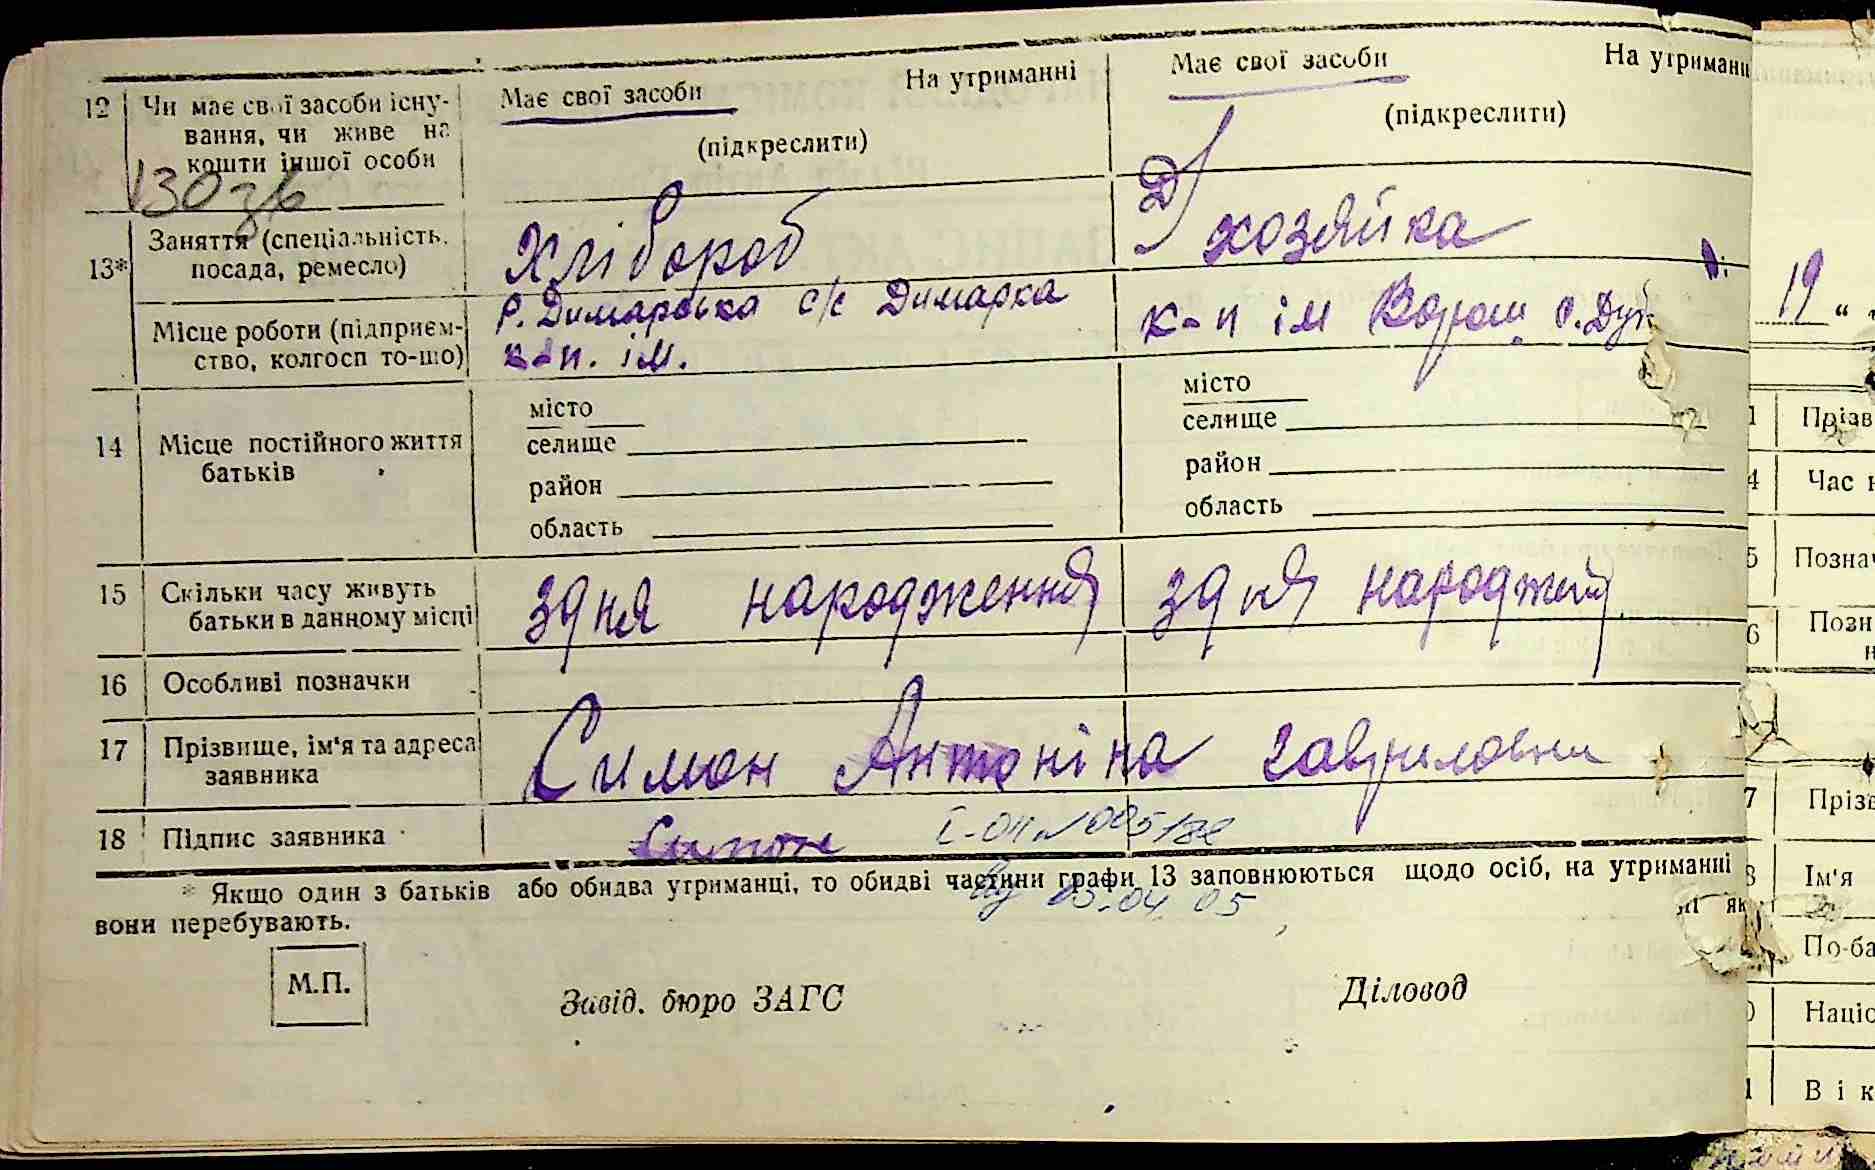 12 Чи має свої засоби існу- Має свої засоби На утриманні Має свої засоби На утриманн
вання, чи живе на (підкреслити) (підкреслити)
кошти іншої особи
13* Заняття (спеціальність, Хлібороб Д/хозяйка
посада, ремесло)
Місце роботи (підприєм- с/с Димарка к-п ім Ворош
ство, колгосп то-що) к-п. ім.
14 Місце постійного життя місто місто
батьків селище селище
район район
область область
15 Скільки часу живуть з дня народження з дня народжен
батьки в данному місці
16 Особливі позначки
17 Прізвище, ім'я та адреса Симон Антоніна Гавриловна
заявника
18 Підпис заявника Симон
* Якщо один з батьків або обидва утриманці, то обидві частини графи 13 заповнюються щодо осіб, на утриманні
вони перебувають.
03.04.05
М.П. Завід. бюро ЗАГС Діловод
19 "
Прізв
Час н
Познач
Позн
Прізв
Ім'я
По-ба
Націо
Вік